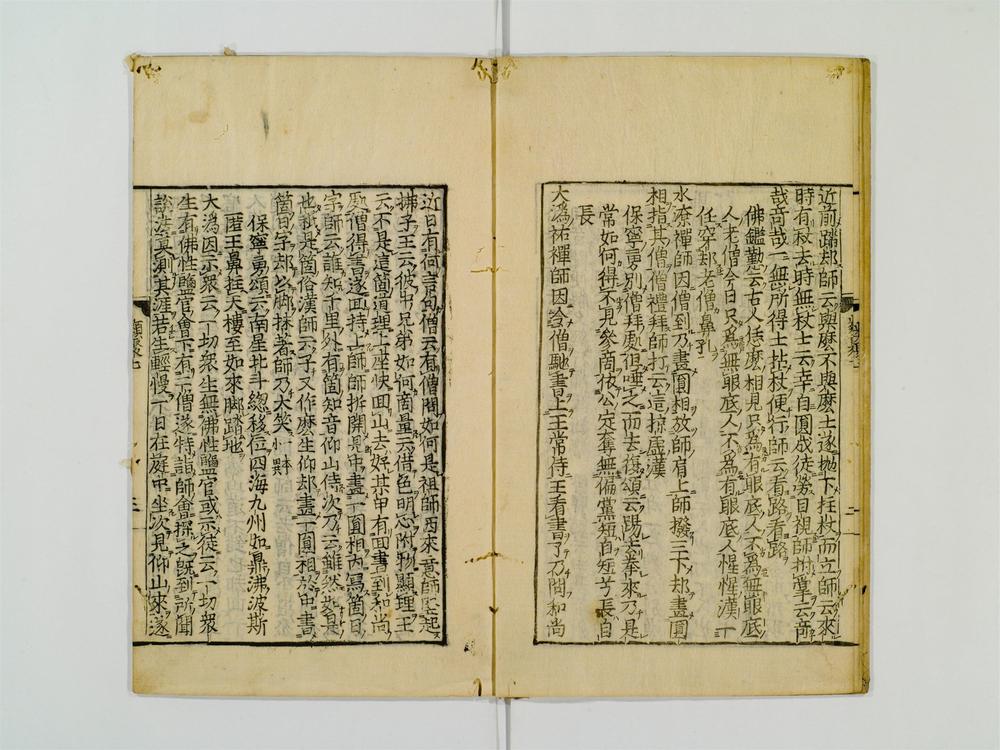 近前蹋却師云與麼不與麼士遂抛下拄杖而立師云來
時有杖去時無杖士云幸自圓成徒勞目視師拊掌云奇
哉奇哉一無所得士拈杖便行師云看路看路
佛鑑勤云古人恁麼相見只為有眼底人不為無眼底
人老僧今日只為無眼底人不為有眼底人惺惺漢一
任穿却老僧鼻孔
水療禪師因僧到乃畫圓相放師肩上師撥三下却畫圓
相指其僧僧禮拜師打云這掠虛漢
保寧勇別僧拜處但唾之而去復頌云踢去拳來乃是
常如何得不見參商依公定奪無偏黨短自短兮長自
長
大溈祐禪師因僧馳書上王常侍王看書了乃問和尚
近日有何言句僧云有僧問如何是祖師西來意師竪起
拂子王云彼中兄弟如何商量云借色明心附物顯理王
云不是這箇道理上座快回山去好某甲有回書到和尚
處僧得書遂回持上師師拆開見中畫一圓相內寫箇日
字師云誰知千里外有箇知音仰山侍次乃云雖然如是
也秖是箇俗漢師云子又作麼生仰却畫一圓相於中書
箇日字却以脚抹著師乃大笑
保寧勇頌云南星北斗總移位四海九州如鼎沸波斯
匿王鼻拄天樓至如來脚踏地
大溈因示衆云一切衆生無佛性鹽官或示徒云一切衆
生有佛性鹽官會下有二僧遂特詣師會探之既到所聞
說法莫測其涯若生輕慢一日在庭中坐次見仰山來遂